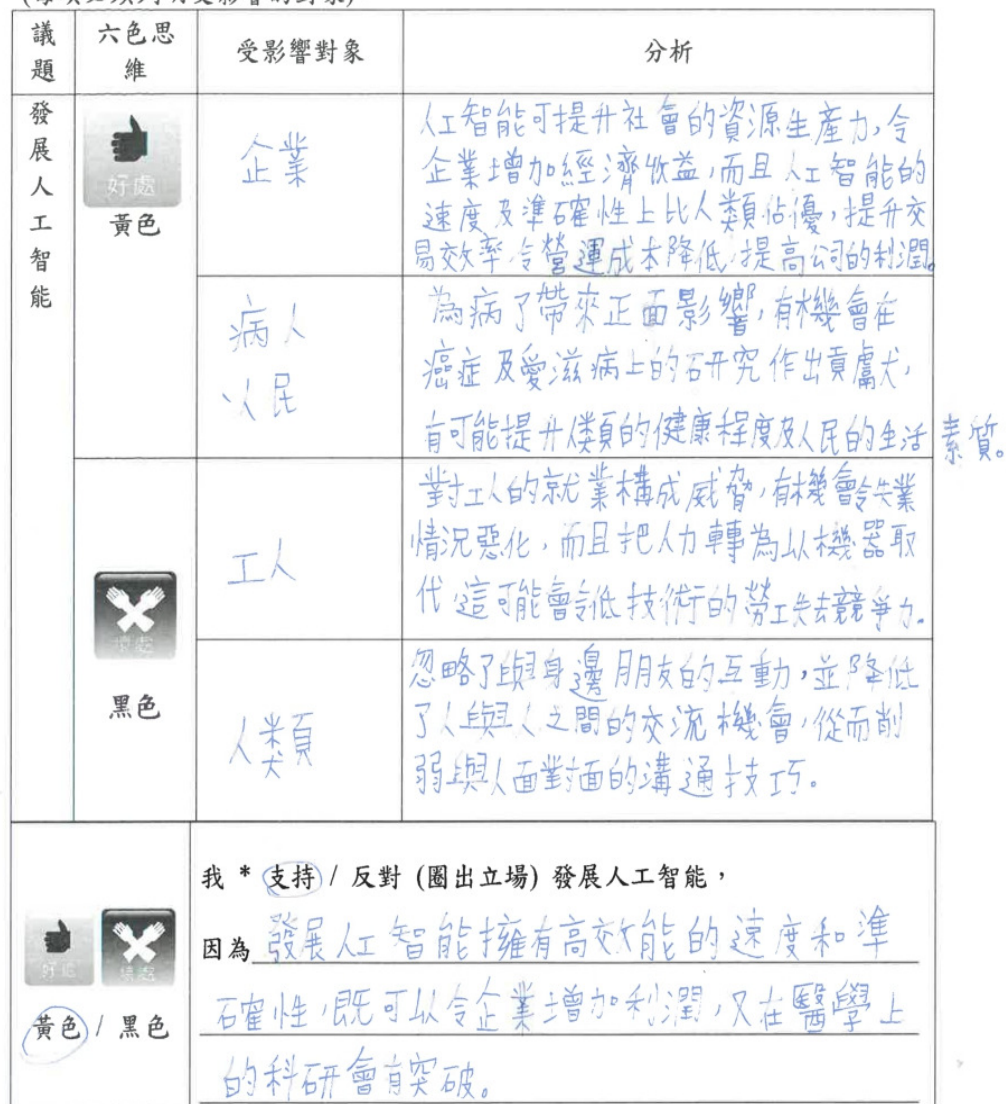 議題 六色思維 受影響對象 分析
發展人工智能
好處
黃色
企業
人工智能可提升社會的資源生產力,令
企業增加經濟收益,而且人工智能的
速度及準確性上比人類佔優,提升交
易效率令營運成本降低,提高公司的利潤。
病人
人民
為病了帶來正面影響,有機會在
癌症及愛滋病上的研究作出貢獻,
有可能提升人類的健康程度及人民的生活素質。
壞處
黑色
工人
對工人的就業構成威脅,有機會令失業
情況惡化,而且把人力轉為以機器取
代,這可能會令低技術行的勞工失去競爭力。
人類
忽略了與身邊朋友的互動,並降低
了人與人之間的交流機會,從而削
弱與人面對面的溝通技巧。
好處 壞處
黃色 / 黑色
我 * 支持 / 反對 (圈出立場) 發展人工智能,
因為 發展人工智能擁有高效能的速度和準
確性,既可以令企業增加利潤,又在醫學上
的科研會有突破。